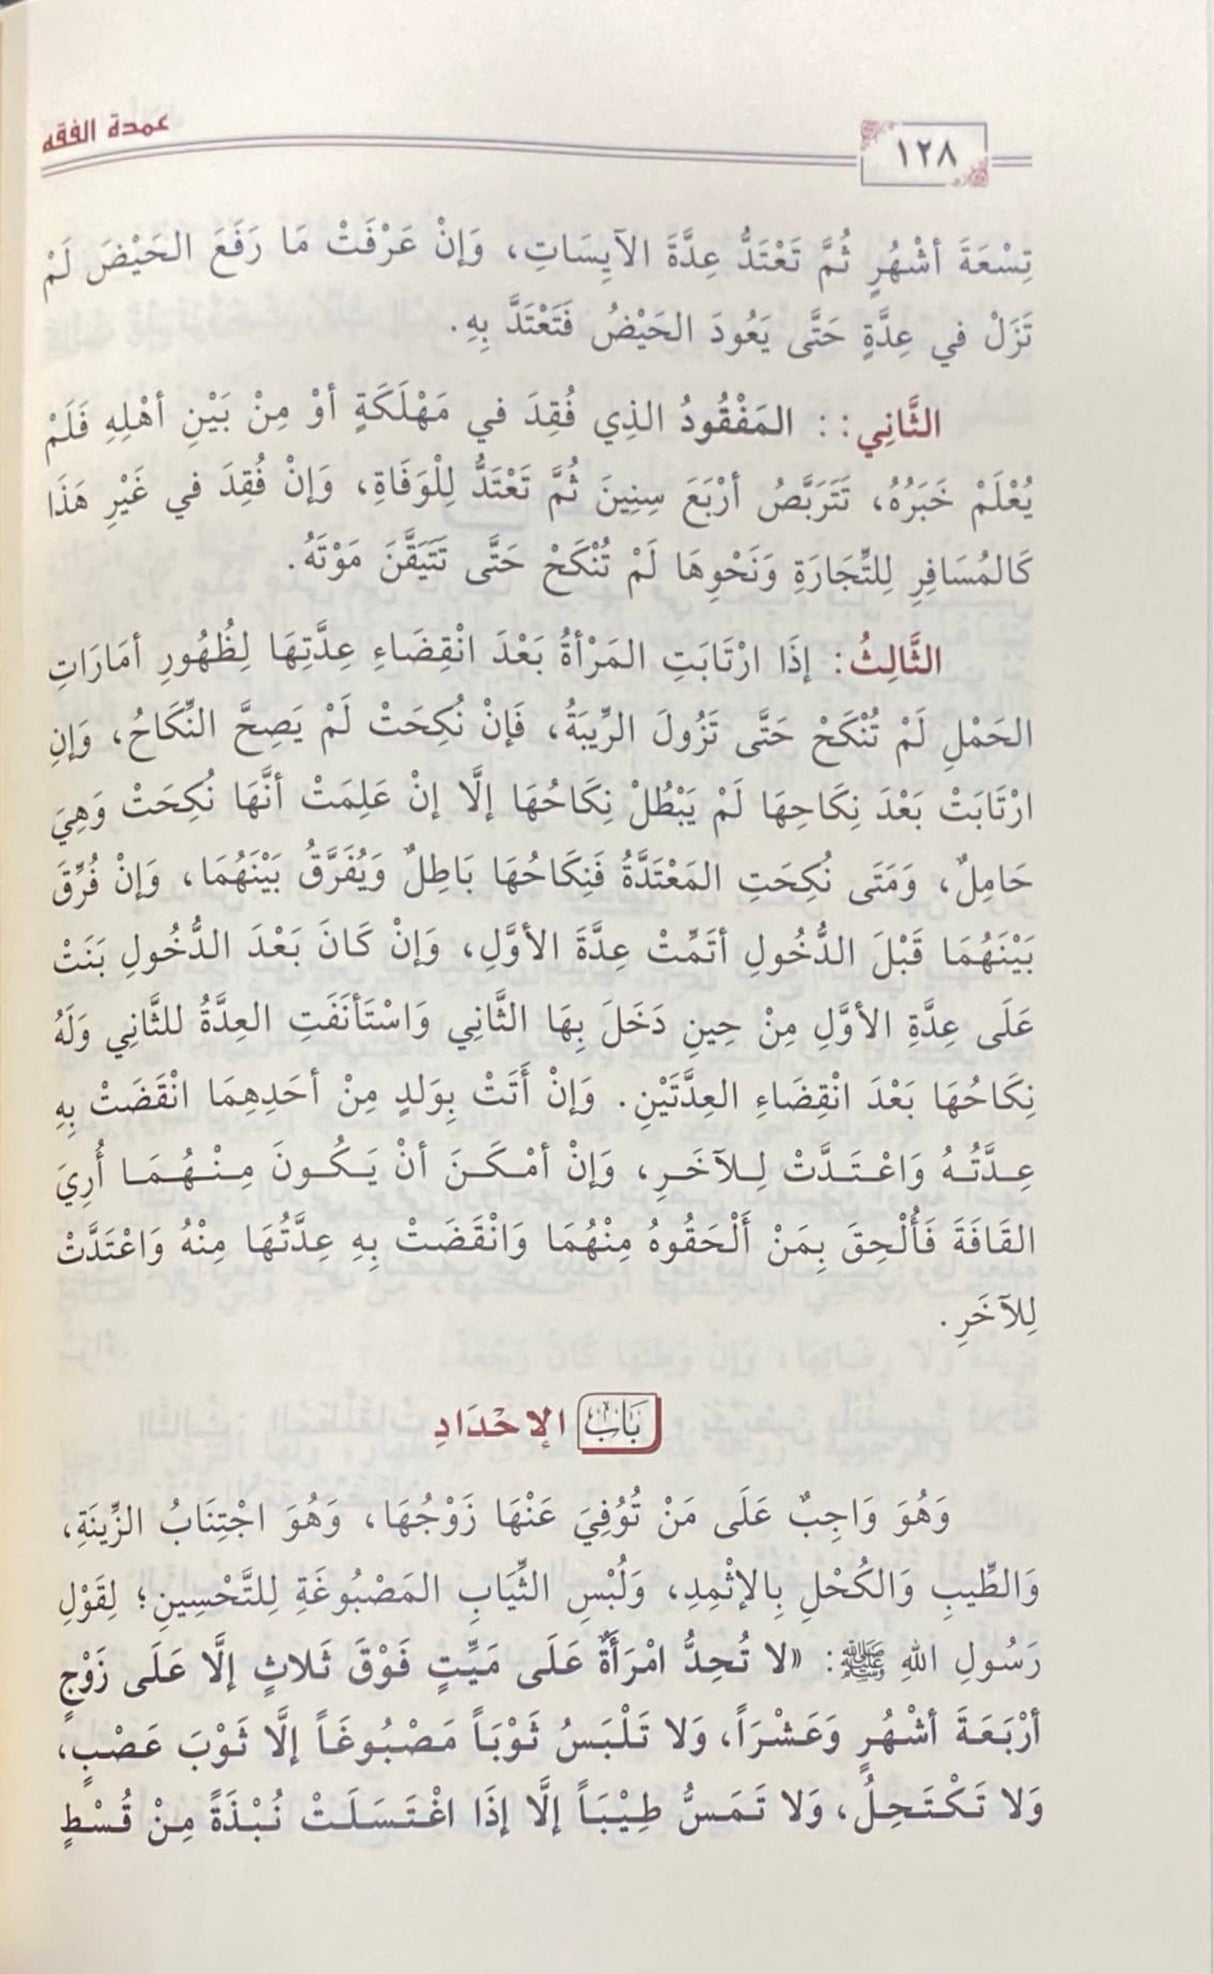 عمدة الفقه
١٢٨
تِسْعَةَ أشْهُرٍ ثُمَّ تَعْتَدُّ عِدَّةَ الآيِسَاتِ، وَإنْ عَرْفَتْ مَا رَفَعَ الحَيْضَ لَمْ
تَزَلْ في عِدَّةٍ حَتَّى يَعُودَ الحَيْضُ فَتَعْتَدَّ بِهِ.
الثَّانِي: : المَفْقُودُ الذِي فُقِدَ في مَهْلَكَةٍ أوْ مِنْ بَيْنِ أهْلِهِ فَلَمْ
يُعْلَمْ خَبَرُهُ، تَتَرَبَّصُ أرْبَعَ سِنِينَ ثُمَّ تَعْتَدُّ لِلْوَفَاةِ، وَإنْ فُقِدَ في غَيْرِ هَذَا
كَالمُسَافِرِ لِلتِّجَارَةِ وَنَحْوِهَا لَمْ تُنْكَحْ حَتَّى تَتَيَقَّنَ مَوْتَهُ.
الثَّالِثُ: إذَا ارْتَابَتِ المَرْأةُ بَعْدَ انْقِضَاءِ عِدَّتِهَا لِظُهُورِ أمَارَاتِ
الحَمْلِ لَمْ تُنْكَحْ حَتَّى تَزُولَ الرِّيبَةُ، فَإنْ نُكِحَتْ لَمْ يَصِحَّ النِّكَاحُ، وَإنِ
ارْتَابَتْ بَعْدَ نِكَاحِهَا لَمْ يَبْطُلْ نِكَاحُهَا إلَّا إنْ عَلِمَتْ أنَّهَا نُكِحَتْ وَهِيَ
حَامِلٌ، وَمَتَى نُكِحَتِ المَعْتَدَّةُ فَنِكَاحُهَا بَاطِلٌ وَيُفَرَّقُ بَيْنَهُمَا، وَإنْ فُرِّقَ
بَيْنَهُمَا قَبْلَ الدُّخُولِ أتَمِّتْ عِدَّةَ الأوَّلِ، وَإنْ كَانَ بَعْدَ الدُّخُولِ بَنَتْ
عَلَى عِدَّةِ الأوَّلِ مِنْ حِينِ دَخَلَ بِهَا الثَّانِي وَاسْتَأنَفَتِ العِدَّةُ للثَّانِي وَلَهُ
نِكَاحُهَا بَعْدَ انْقِضَاءِ العِدَّتَيْنِ. وَإنْ أَتَتْ بِوَلدٍ مِنْ أحَدِهِمَا انْقَضَتْ بِهِ
عِدَّتُهُ وَاعْتَدَّتْ لِلآخَرِ، وَإنْ أمْكَنَ أنْ يَكُونَ مِنْهُمَا أُرِيَ
القَافَةَ فَأُلْحِقَ بِمَنْ أَلْحَقُوهُ مِنْهُمَا وَانْقَضَتْ بِهِ عِدَّتُهَا مِنْهُ وَاعْتَدَّتْ
لِلآخَرِ.
بَابُ الإحْدَادِ
وَهُوَ وَاجِبٌ عَلَى مَنْ تُوُفِيَ عَنْهَا زَوْجُهَا، وَهُوَ اجْتِنَابُ الزِّينَةِ،
وَالطِّيبِ وَالكُحْلِ بِالإثْمِدِ، وَلُبْسِ الثِّيَابِ المَصْبُوغَةِ لِلتَّحْسِينِ؛ لِقَوْلِ
رَسُولِ اللهِ ﷺ: «لا تُحِدُّ امْرَأَةٌ عَلَى مَيِّتٍ فَوْقَ ثَلاثٍ إلَّا عَلَى زَوْجٍ
أرْبَعَةَ أشْهُرٍ وَعَشْرَاً، وَلا تَلْبَسُ ثَوْبَاً مَصْبُوغَاً إلَّا ثَوْبَ عَصْبٍ،
وَلا تَكْتَحِلُ، وَلا تَمَسُّ طِيْبَاً إلَّا إذَا اغْتَسَلَتْ نُبْذَةً مِنْ قُسْطٍ